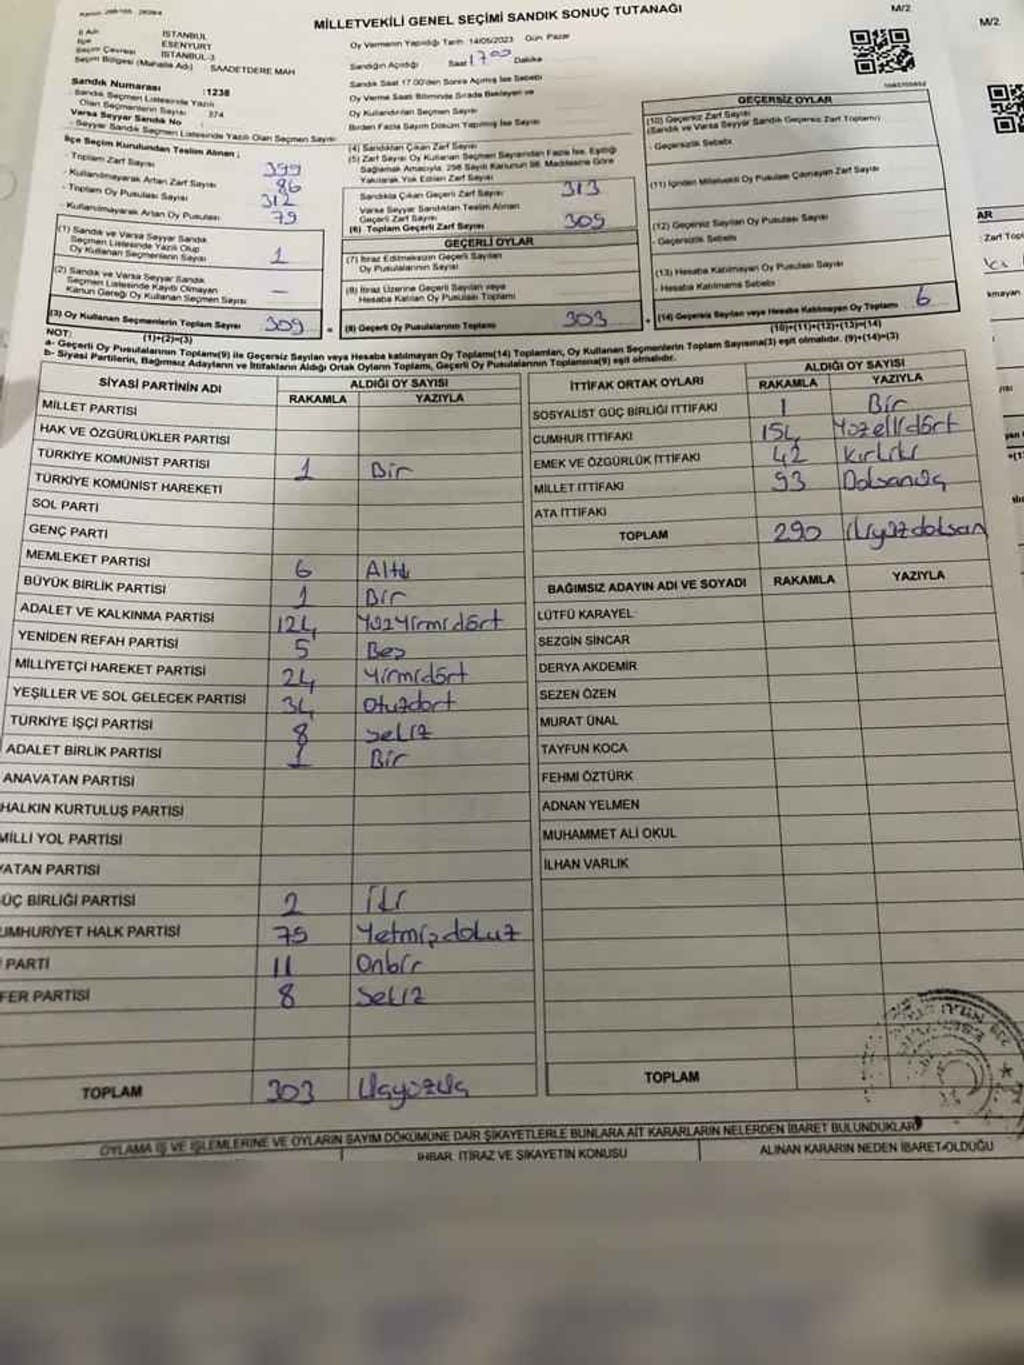 MİLLETVEKİLİ GENEL SEÇİMİ SANDIK SONUÇ TUTANAĞI
M/2
M/2
İl Adı
İSTANBUL
İlçe
ESENYURT
Seçim Çevresi
İSTANBUL-3
Seçim Bölgesi (Mahalle Adı)
SAADETDERE MAH
Oy Vermenin Yapıldığı Tarih: 14/05/2023 Gün: Pazar
Sandığın Açıldığı Saat 17 00 Dakika
Sandık Saat 17.00'den Sonra Açılmış İse Sebebi
Oy Verme Saati Bitiminde Sırada Bekleyen ve
Oy Kullandırılan Seçmen Sayısı
Birden Fazla Sayım Döküm Yapılmış İse Sayısı
Sandık Numarası :1238
Sandık Seçmen Listesinde Yazılı
Olan Seçmenlerin Sayısı 374
Varsa Seyyar Sandık No
- Seyyar Sandık Seçmen Listesinde Yazılı Olan Seçmen Sayısı
İlçe Seçim Kurulundan Teslim Alınan ;
- Toplam Zarf Sayısı 399
- Kullanılmayarak Artan Zarf Sayısı 86
- Toplam Oy Pusulası Sayısı 312
- Kullanılmayarak Artan Oy Pusulası 79
(1) Sandık ve Varsa Seyyar Sandık
Seçmen Listesinde Yazılı Olup
Oy Kullanan Seçmenlerin Sayısı 1
(2) Sandık ve Varsa Seyyar Sandık
Seçmen Listesinde Kayıtlı Olmayan
Kanun Gereği Oy Kullanan Seçmen Sayısı —
(3) Oy Kullanan Seçmenlerin Toplam Sayısı 309
(1)+(2)=(3)
(4) Sandıktan Çıkan Zarf Sayısı
(5) Zarf Sayısı Oy Kullanan Seçmen Sayısından Fazla İse, Eşitliği
Sağlamak Amacıyla, 298 Sayılı Kanunun 98. Maddesine Göre
Yakılarak Yok Edilen Zarf Sayısı
Sandıkta Çıkan Geçerli Zarf Sayısı 313
Varsa Seyyar Sandıktan Teslim Alınan
Geçerli Zarf Sayısı
(6) Toplam Geçerli Zarf Sayısı 309
GEÇERLİ OYLAR
(7) İtiraz Edilmeksizin Geçerli Sayılan
Oy Pusulalarının Sayısı
(8) İtiraz Üzerine Geçerli Sayılan veya
Hesaba Katılan Oy Pusulası Toplamı
(9) Geçerli Oy Pusulalarının Toplamı 303
GEÇERSİZ OYLAR
(10) Geçersiz Zarf Sayısı
(Sandık ve Varsa Seyyar Sandık Geçersiz Zarf Toplamı)
- Geçersizlik Sebebi
(11) İçinden Milletvekili Oy Pusulası Çıkmayan Zarf Sayısı
(12) Geçersiz Sayılan Oy Pusulası Sayısı
- Geçersizlik Sebebi
(13) Hesaba Katılmayan Oy Pusulası Sayısı
- Hesaba Katılmama Sebebi
(14) Geçersiz Sayılan veya Hesaba Katılmayan Oy Toplamı 6
(10)+(11)+(12)+(13)=(14)
NOT:
a- Geçerli Oy Pusulalarının Toplamı(9) ile Geçersiz Sayılan veya Hesaba katılmayan Oy Toplamı(14) Toplamları, Oy Kullanan Seçmenlerin Toplam Sayısına(3) eşit olmalıdır. (9)+(14)=(3)
b- Siyasi Partilerin, Bağımsız Adayların ve İttifakların Aldığı Ortak Oyların Toplamı, Geçerli Oy Pusulalarının Toplamına(9) eşit olmalıdır.
SİYASİ PARTİNİN ADI
ALDIĞI OY SAYISI
RAKAMLA YAZIYLA
MİLLET PARTİSİ
HAK VE ÖZGÜRLÜKLER PARTİSİ
TÜRKİYE KOMÜNİST PARTİSİ 1 Bir
TÜRKİYE KOMÜNİST HAREKETİ
SOL PARTİ
GENÇ PARTİ
MEMLEKET PARTİSİ 6 Altı
BÜYÜK BİRLİK PARTİSİ 1 Bir
ADALET VE KALKINMA PARTİSİ 124 Yüzyirmidört
YENİDEN REFAH PARTİSİ 5 Beş
MİLLİYETÇİ HAREKET PARTİSİ 24 Yirmidört
YEŞİLLER VE SOL GELECEK PARTİSİ 34 Otuzdört
TÜRKİYE İŞÇİ PARTİSİ 8 Sekiz
ADALET BİRLİK PARTİSİ 1 Bir
ANAVATAN PARTİSİ
HALKIN KURTULUŞ PARTİSİ
MİLLİ YOL PARTİSİ
VATAN PARTİSİ
GÜÇ BİRLİĞİ PARTİSİ 2 İki
CUMHURİYET HALK PARTİSİ 79 Yetmişdokuz
PARTİ 11 Onbir
FER PARTİSİ 8 Sekiz
TOPLAM 303 Üçyüzüç
İTTİFAK ORTAK OYLARI
ALDIĞI OY SAYISI
RAKAMLA YAZIYLA
SOSYALİST GÜÇ BİRLİĞİ İTTİFAKI 1 Bir
CUMHUR İTTİFAKI 154 Yüzellidört
EMEK VE ÖZGÜRLÜK İTTİFAKI 42 Kırkiki
MİLLET İTTİFAKI 93 Doksanüç
ATA İTTİFAKI
TOPLAM 290 İkiyüzdoksan
BAĞIMSIZ ADAYIN ADI VE SOYADI RAKAMLA YAZIYLA
LÜTFÜ KARAYEL
SEZGİN SİNCAR
DERYA AKDEMİR
SEZEN ÖZEN
MURAT ÜNAL
TAYFUN KOCA
FEHMİ ÖZTÜRK
ADNAN YELMEN
MUHAMMET ALİ OKUL
İLHAN VARLIK
TOPLAM
OYLAMA İŞ VE İŞLEMLERİNE VE OYLARIN SAYIM DÖKÜMÜNE DAİR ŞİKAYETLERLE BUNLARA AİT KARARLARIN NELERDEN İBARET BULUNDUKLARI
İHBAR, İTİRAZ VE ŞİKAYETİN KONUSU
ALINAN KARARIN NEDEN İBARET OLDUĞU